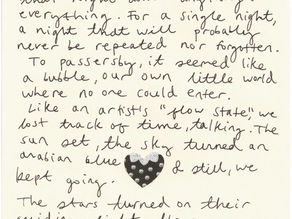 everything. For a single night,
a night that will probably
never be repeated nor forgotten.
To passersby, it seemed like
a bubble, our own little world
where no one could enter.
Like an artist's "flow state," we
lost track of time, talking. The
sun set, the sky turned an
arabian blue & still, we
kept going.
The stars turned on their